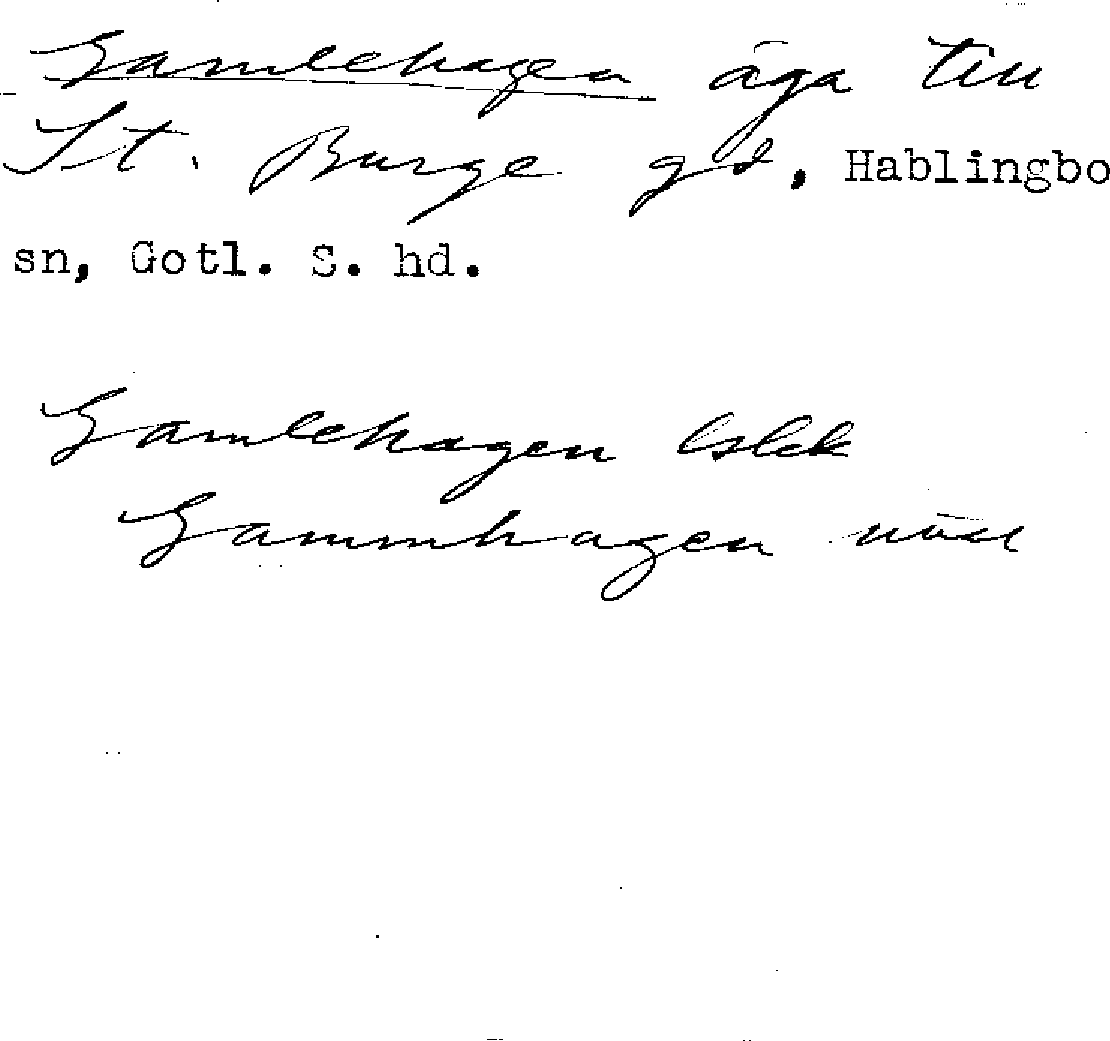 Gamlehagen äga till
St. Burge gd, Hablingbo
sn, Gotl. S. hd.
Gamlehagen
Gammhagen